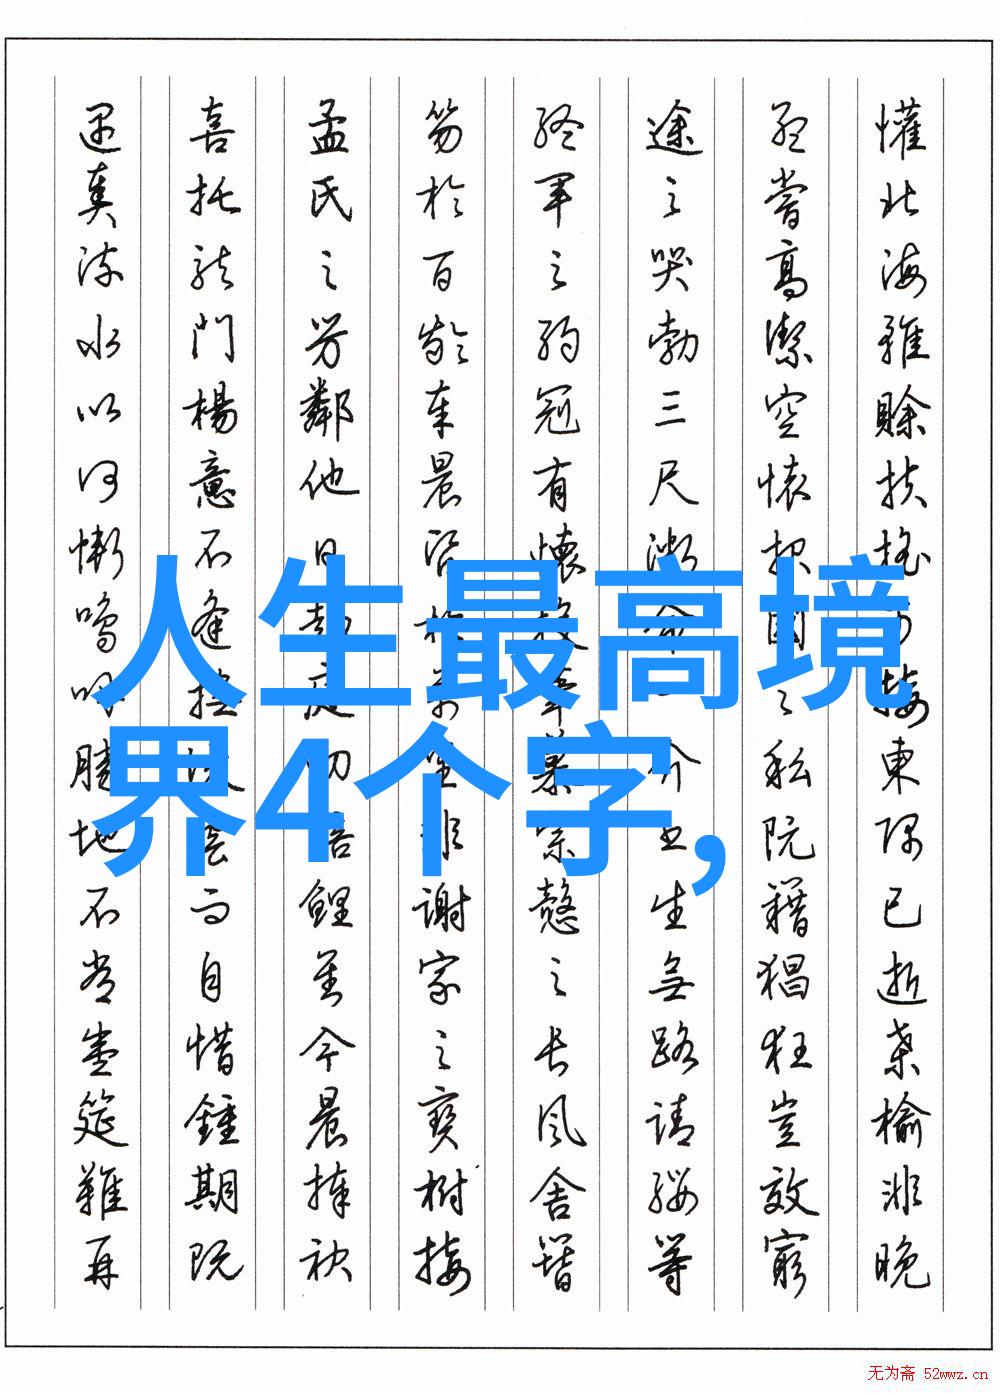 懽北海雖賒扶搖可接東隅已逝桑榆非晚
孟嘗高潔空懷報國之私阮籍猖狂豈效窮
途之哭勃三尺微命一介書生無路請纓等
終軍之弱冠有懷投筆慕宗慤之長風舍簪
笏於百齡奉晨昏於萬里非謝家之寶樹接
孟氏之芳鄰他日趨庭叨陪鯉對今晨捧袂
喜托龍門楊意不逢撫凌雲而自惜鍾期既
遇奏流水以何慚嗚呼勝地不常盛筵難再
人生最高境
界4个字,
无为斋 52wwz.cn